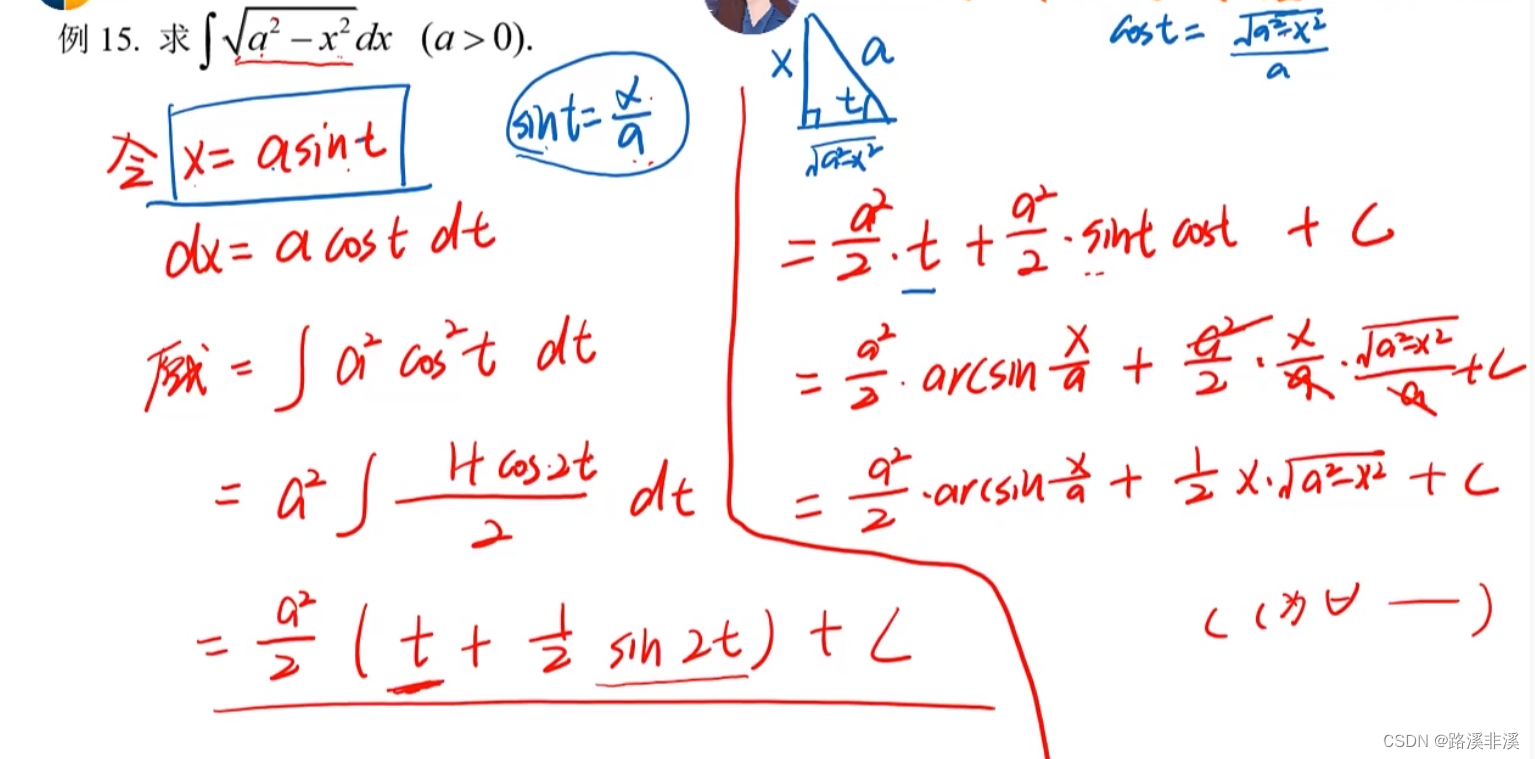 例 15. 求 ∫√(a² − x²) dx (a > 0).
令 x = a sin t
sin t = x/a
x
a
t
√(a²−x²)
cos t = √(a²−x²)/a
dx = a cos t dt
原式 = ∫ a² cos² t dt
= a² ∫ (1+cos 2t)/2 dt
= a²/2 ( t + 1/2 sin 2t ) + C
= a²/2 · t + a²/2 · sin t cos t + C
= a²/2 · arcsin x/a + a²/2 · x/a · √(a²−x²)/a + C
= a²/2 · arcsin x/a + 1/2 x · √(a²−x²) + C
( C为∀ — )
CSDN @路溪非溪